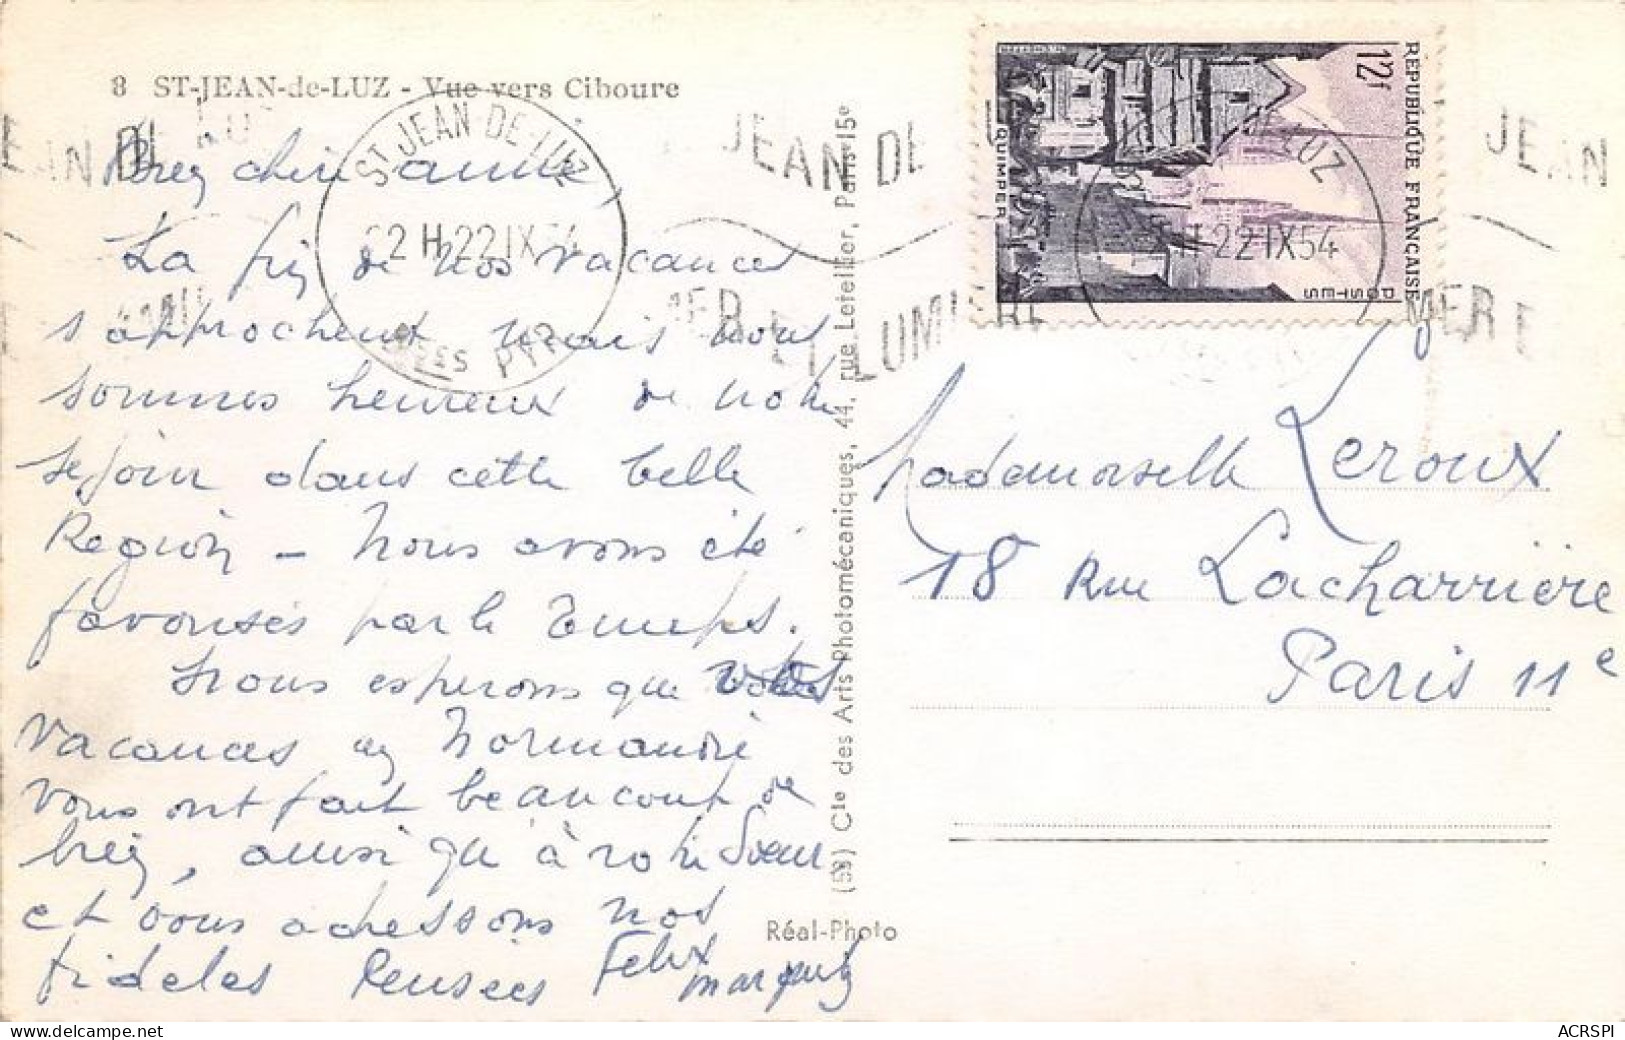 8 ST-JEAN-de-LUZ - Vue vers Ciboure
Bien chère amie,
La fin de nos vacances
s'approchent mais nous
sommes heureux de notre
sejour dans cette belle
Region - Nous avons été
favorisés par le Temps.
Nous esperons que vos
vacances en Normandie
vous ont fait beaucoup de
bien, ainsi qu'à votre Soeur
et vous adressons nos
fideles Pensées Felix
Marguerite
ST JEAN-DE-LUZ
22 H 22 IX 54
BSES PYR.
JEAN DE LUZ
MER ET LUMIERE
(59) Cie des Arts Photomécaniques, 44, rue Letellier, Paris-15e
Réal-Photo
REPUBLIQUE FRANÇAISE
12f
POSTES
QUIMPER
22 IX 54
Mademoiselle Leroux
18 Rue Lacharrière
Paris 11e
delcampe.net
ACRSPI